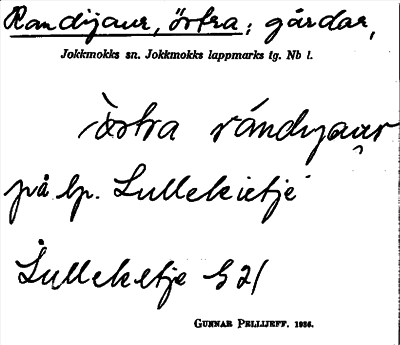 Randijaur, östra; gårdar,
Jokkmokks sn. Jokkmokks lappmarks tg. Nb l.
östra rándijaur
på bp. Lullekietje
Lulleketje S 21
GUNNAR PELLIJEFF. 1936.